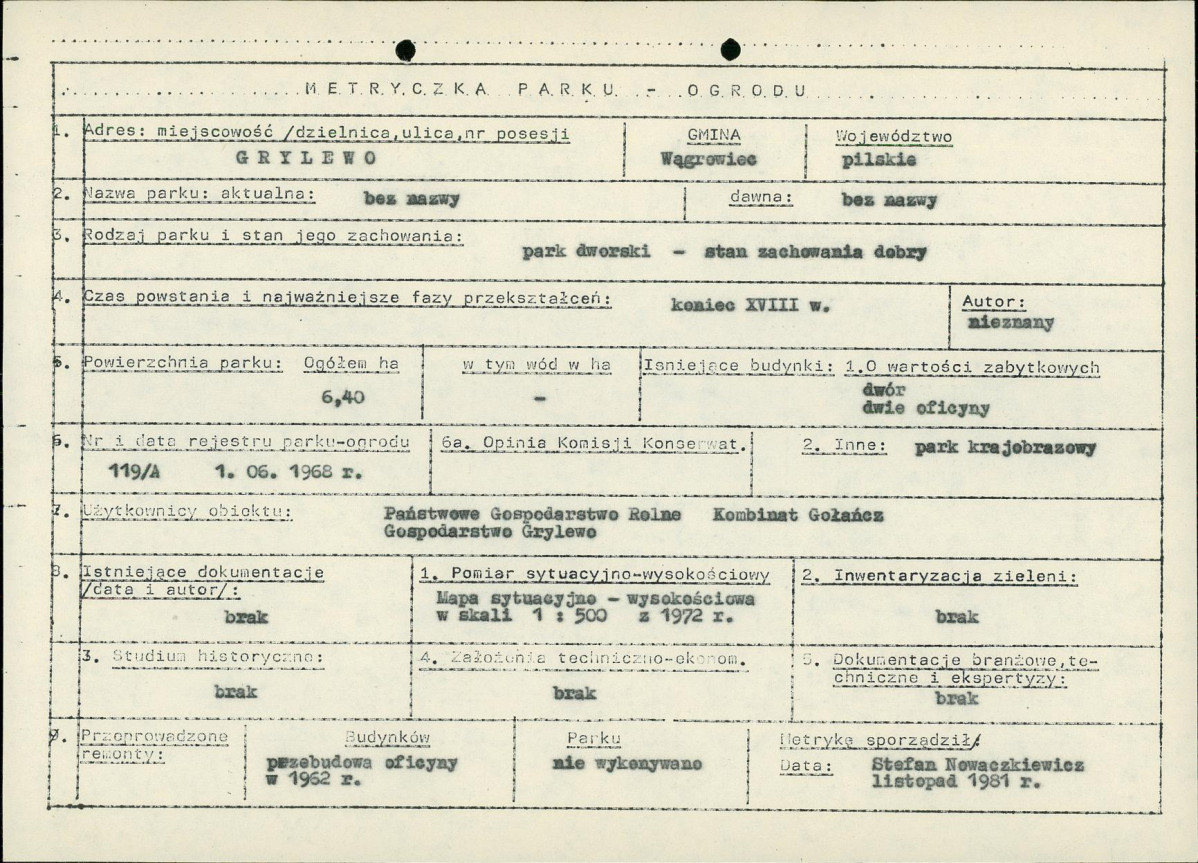 METRYCZKA PARKU - OGRODU
1. Adres: miejscowość /dzielnica,ulica,nr posesji GMINA Województwo
GRYLEWO Wągrowiec pilskie
2. Nazwa parku: aktualna: bez nazwy dawna: bez nazwy
3. Rodzaj parku i stan jego zachowania:
park dworski - stan zachowania dobry
4. Czas powstania i najważniejsze fazy przekształceń: koniec XVIII w. Autor:
nieznany
5. Powierzchnia parku: Ogółem ha w tym wód w ha Isniejące budynki: 1.O wartości zabytkowych
6,40 - dwór
dwie oficyny
6. Nr i data rejestru parku-ogrodu 6a. Opinia Komisji Konserwat. 2. Inne: park krajobrazowy
119/A 1. 06. 1968 r.
7. Użytkownicy obiektu: Państwowe Gospodarstwo Rolne Kombinat Gołańcz
Gospodarstwo Grylewo
8. Istniejące dokumentacje 1. Pomiar sytuacyjno-wysokościowy 2. Inwentaryzacja zieleni:
/data i autor/: Mapa sytuacyjno - wysokościowa
brak w skali 1 : 500 z 1972 r. brak
3. Studium historyczne: 4. Założenia techniczno-ekonom. 5. Dokumentacje branżowe,te-
chniczne i ekspertyzy:
brak brak brak
9. Przeprowadzone Budynków Parku Metrykę sporządził/
remonty: przebudowa oficyny nie wykonywano Data: Stefan Nowaczkiewicz
w 1962 r. listopad 1981 r.